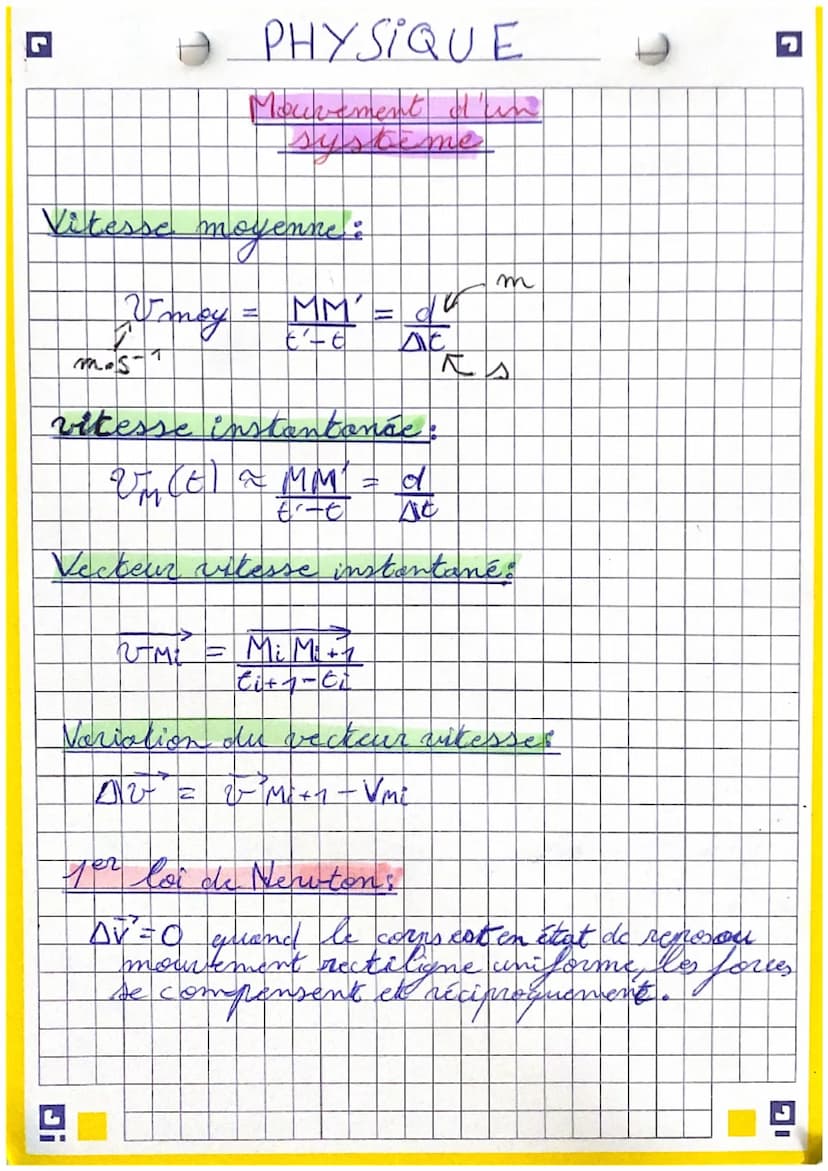 PHYSIQUE
Mouvement d'un
système
Vitesse moyenne :
Vmoy = MM'/t'-t = d/Δt
m
m.s-1
s
vitesse instantanée :
VM(t) ≈ MM'/t'-t = d/Δt
Vecteur vitesse instantané :
v⃗Mi = MiMi+1/ti+1-ti
Variation du vecteur vitesse :
Δv⃗ = v⃗Mi+1 - VMi
1er loi de Newton :
Δv⃗ = 0 quand le corps est en état de repos ou
mouvement rectiligne uniforme, les forces
se compensent et réciproquement.